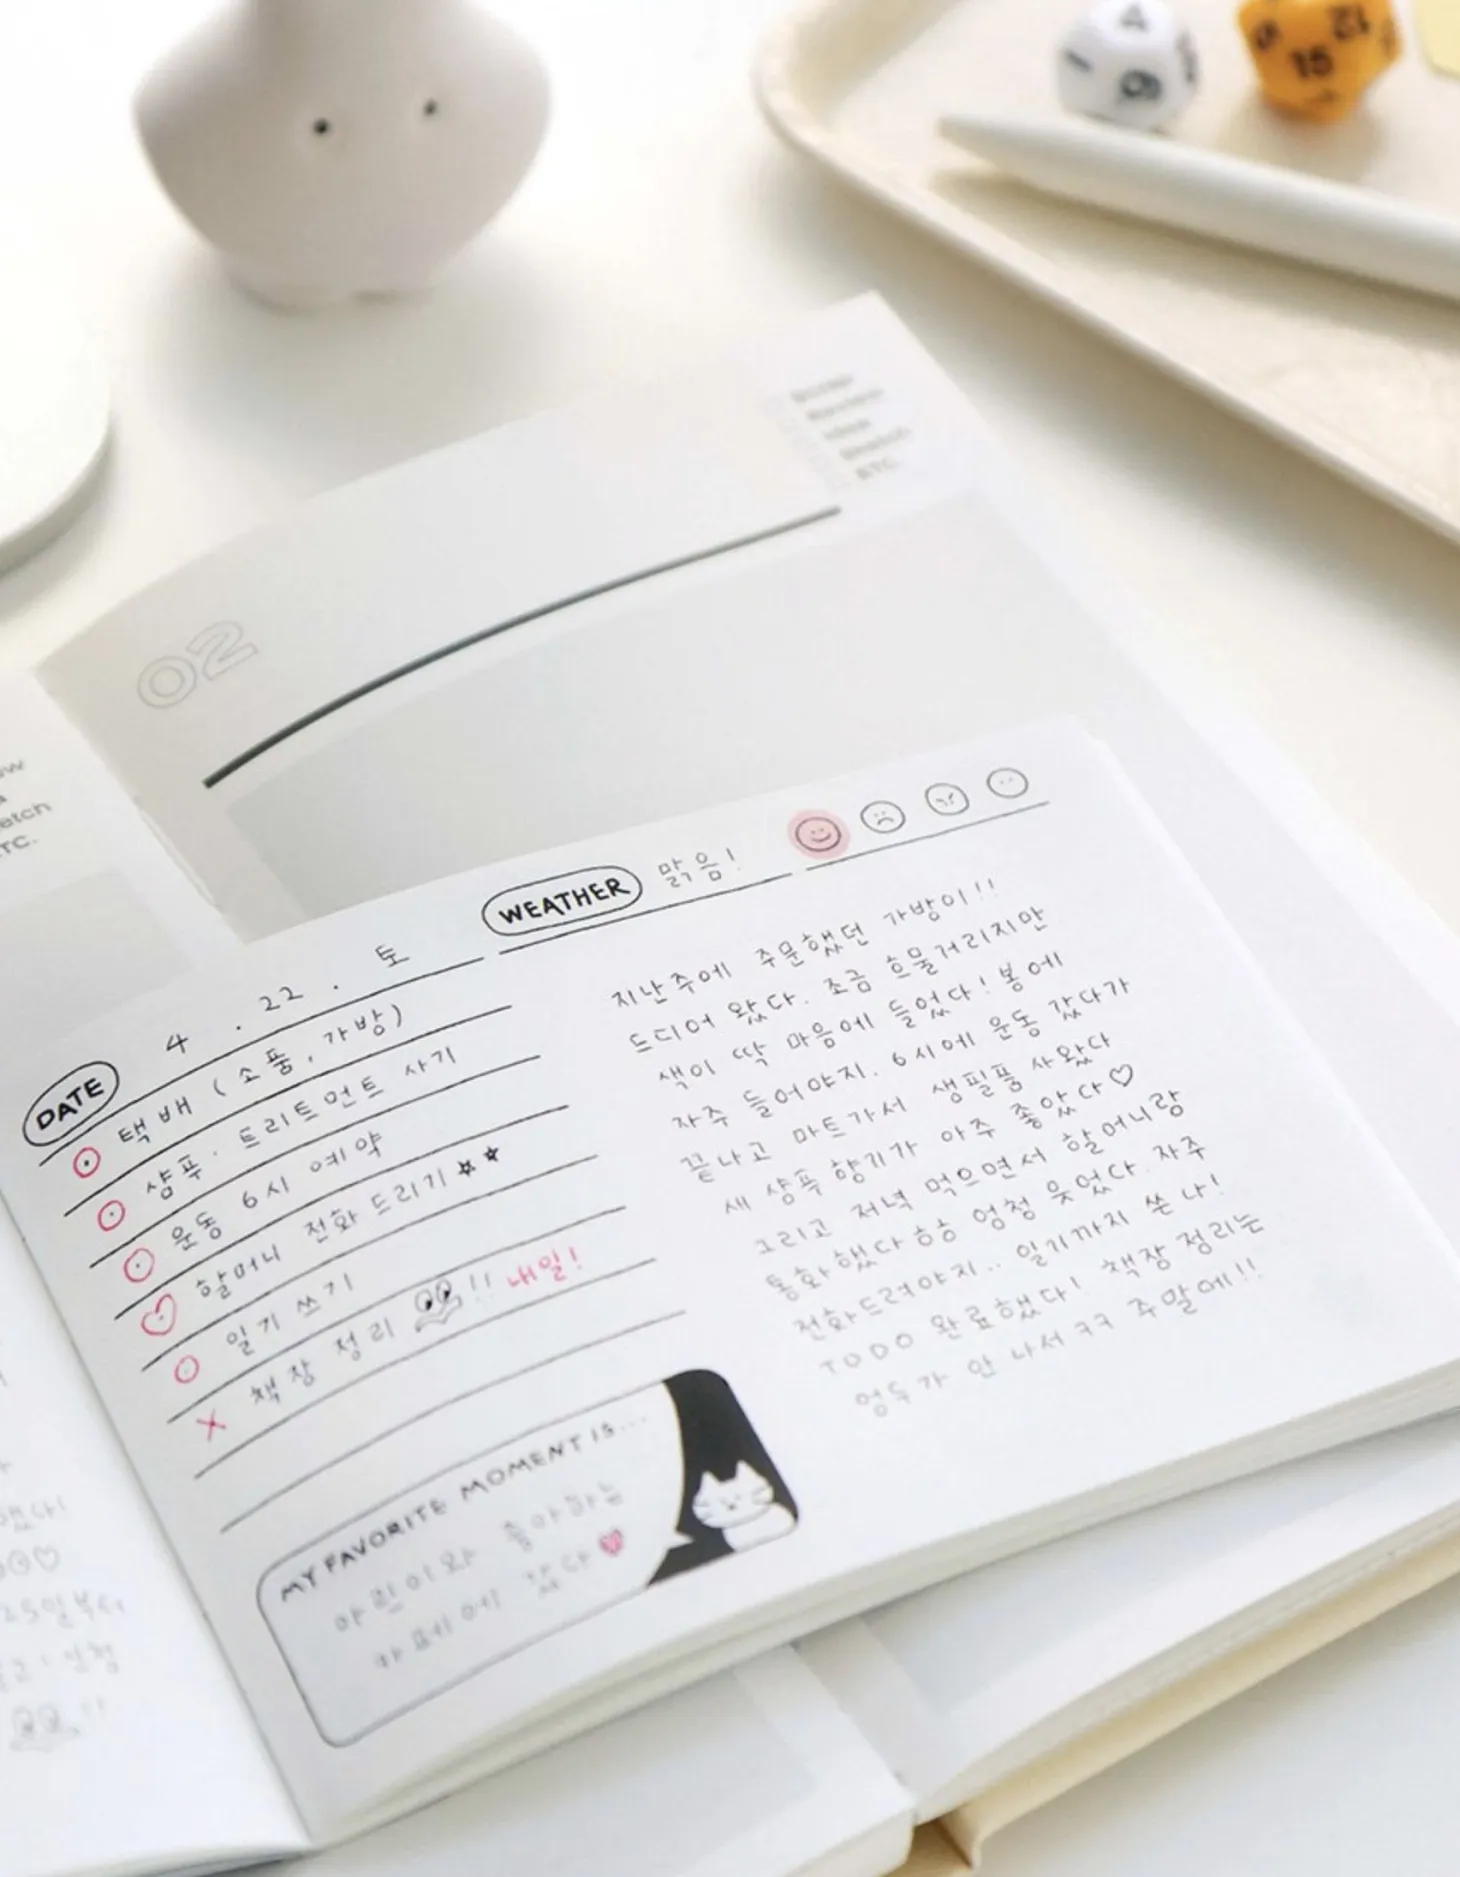 4
9
15
12
02
etch
TC.
DATE 4 . 22 . 토
WEATHER 맑음!
택배 (소품, 가방)
샴푸·트리트먼트 사기
운동 6시 예약
할머니 전화 드리기
일기 쓰기
책장 정리 !! 내일!
MY FAVORITE MOMENT IS...
아린이와 좋아하는
카페에 갔다
지난주에 주문했던 가방이!!
드디어 왔다. 조금 흐물거리지만
색이 딱 마음에 들었다! 봄에
자주 들어야지. 6시에 운동 갔다가
끝나고 마트가서 생필품 사왔다
새 샴푸 향기가 아주 좋았다♡
그리고 저녁 먹으면서 할머니랑
통화했다 ㅎㅎ 엄청 웃었다. 자주
전화드려야지.. 일기까지 쓴 나!
TODO 완료했다! 책장 정리는
엄두가 안 나서 ㅋㅋ 주말에!!
25일부터